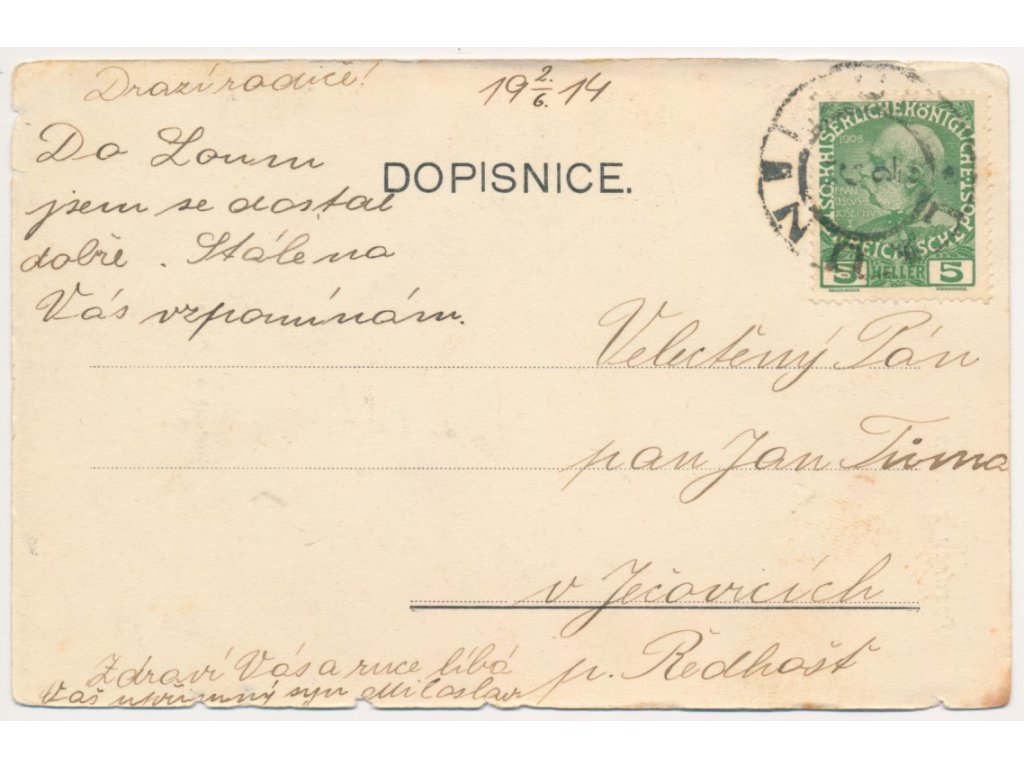 Drazí rodiče!
19 2/6. 14
Do Loun
jsem se dostal
dobře. Stále na
Vás vzpomínám.
DOPISNICE.
KAISERLICHE KÖNIGLICHE
POST
REICHISCHE
1908
5 HELLER 5
Velectěný Pán
pan Jan Tůma
v Ječovicích
p. Ředhošť
Zdraví Vás a ruce líbá
Váš upřímný syn Miloslav